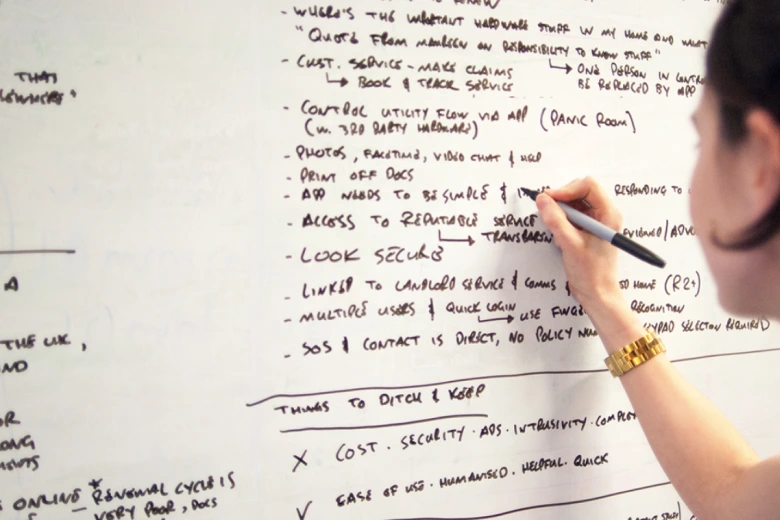 THAT
TO RENEW
- WHERE'S THE IMPORTANT HARDWARE STUFF IN MY HOME AND WHAT
"QUOTE FROM MAUREEN ON RESPONSIBILITY TO KNOW STUFF"
ONE PERSON IN CONTROL
BE REPLACED BY APP
- CUST. SERVICE - MAKE CLAIMS
BOOK & TRACK SERVICE
- CONTROL UTILITY FLOW VIA APP (PANIC ROOM)
(W. 3RD PARTY HARDWARE)
- PHOTOS, FACETIME, VIDEO CHAT & HELP
- PRINT OFF DOCS
- APP NEEDS TO BE SIMPLE & RESPONDING TO
- ACCESS TO REPUTABLE SERVICE
TRANSPAREN
- LOOK SECURE
- LINKED TO LANDLORD SERVICE & COMMS & HOME (R2+)
- MULTIPLE USERS & QUICK LOGIN
USE RECOGNITION
- SOS & CONTACT IS DIRECT, NO POLICY SELECTION REQUIRED
THINGS TO DITCH & KEEP
X COST · SECURITY · ADS · INTRUSIVITY ·
√ EASE OF USE · HUMANISED · HELPFUL · QUICK
A
THE UK,
ONLINE * RENEWAL CYCLE IS
VERY POOR, DOCS